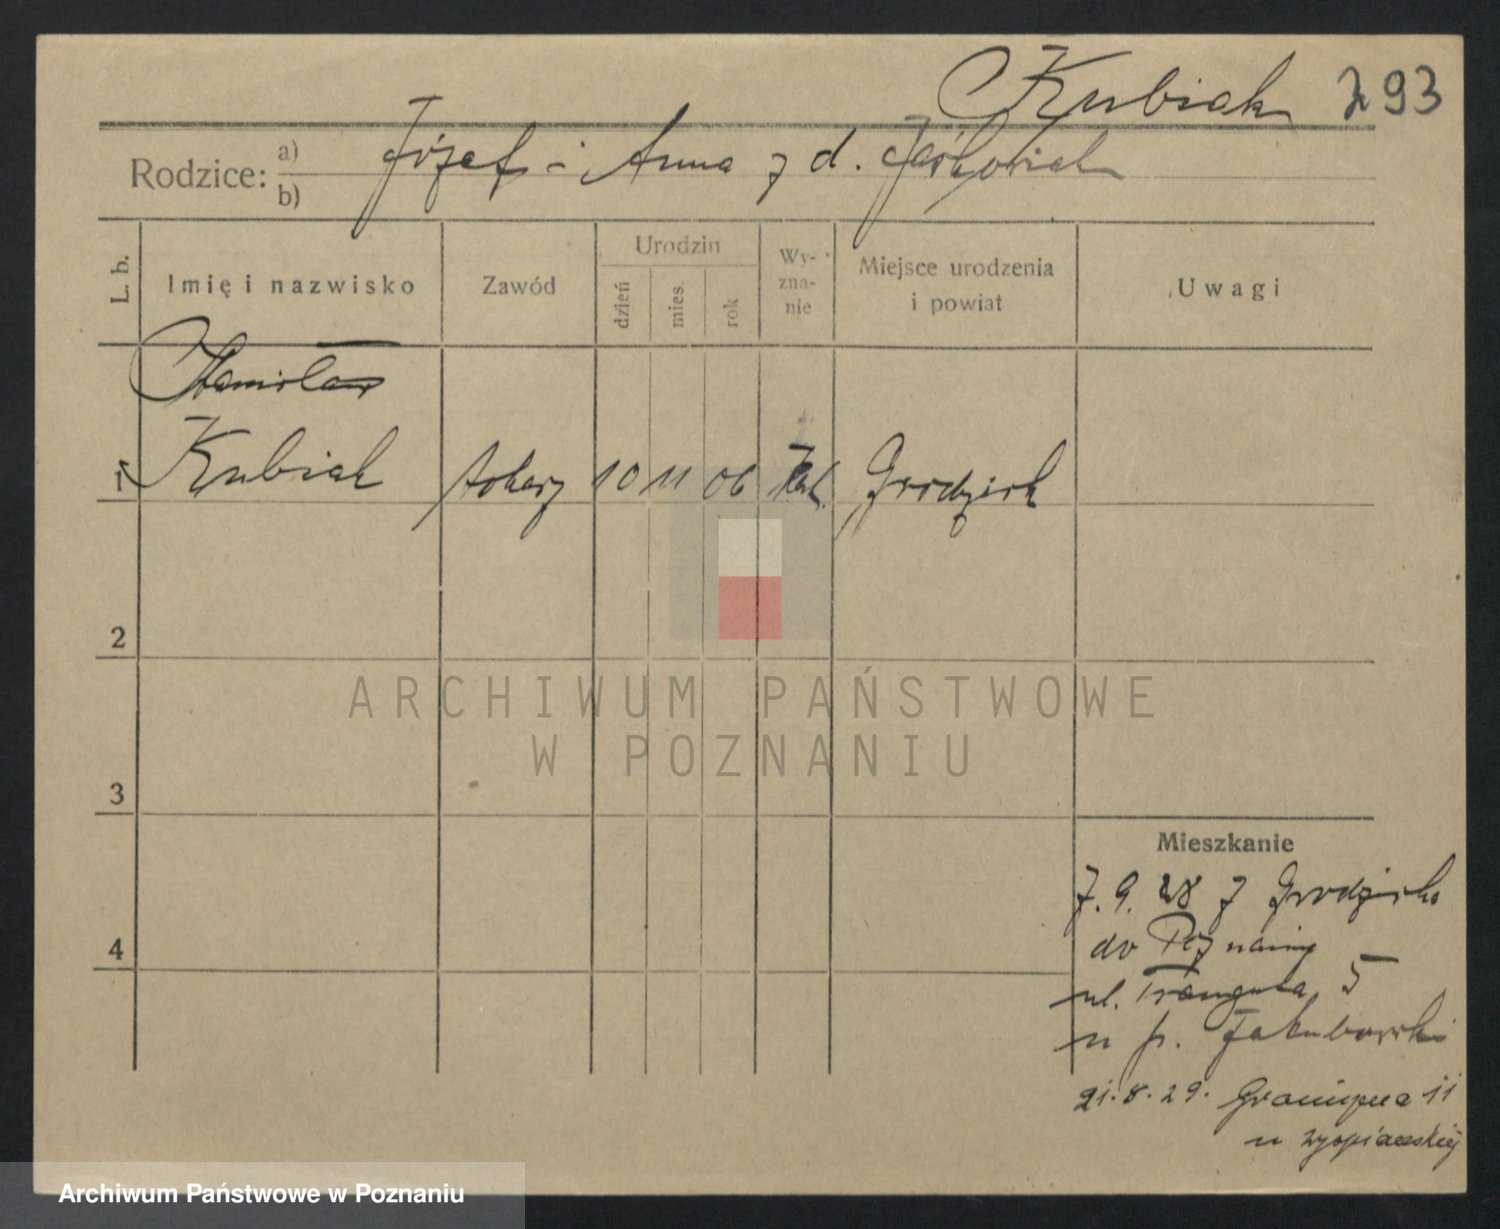 Kubiak 293
Rodzice: a) b) Józef i Anna z d.
L. b. Imię i nazwisko Zawód Urodzin dzień mies. rok Wy-zna-nie Miejsce urodzenia i powiat Uwagi
Stanisław
1 Kubiak tokarz 10 11 06 kat. Grodzisk
2
3
4
Mieszkanie
7. 9. 28 z Grodziska
do Poznania
ul. 5
u p. Jakubowski
21. 8. 29. 11
u
ARCHIWUM PAŃSTWOWE
W POZNANIU
Archiwum Państwowe w Poznaniu